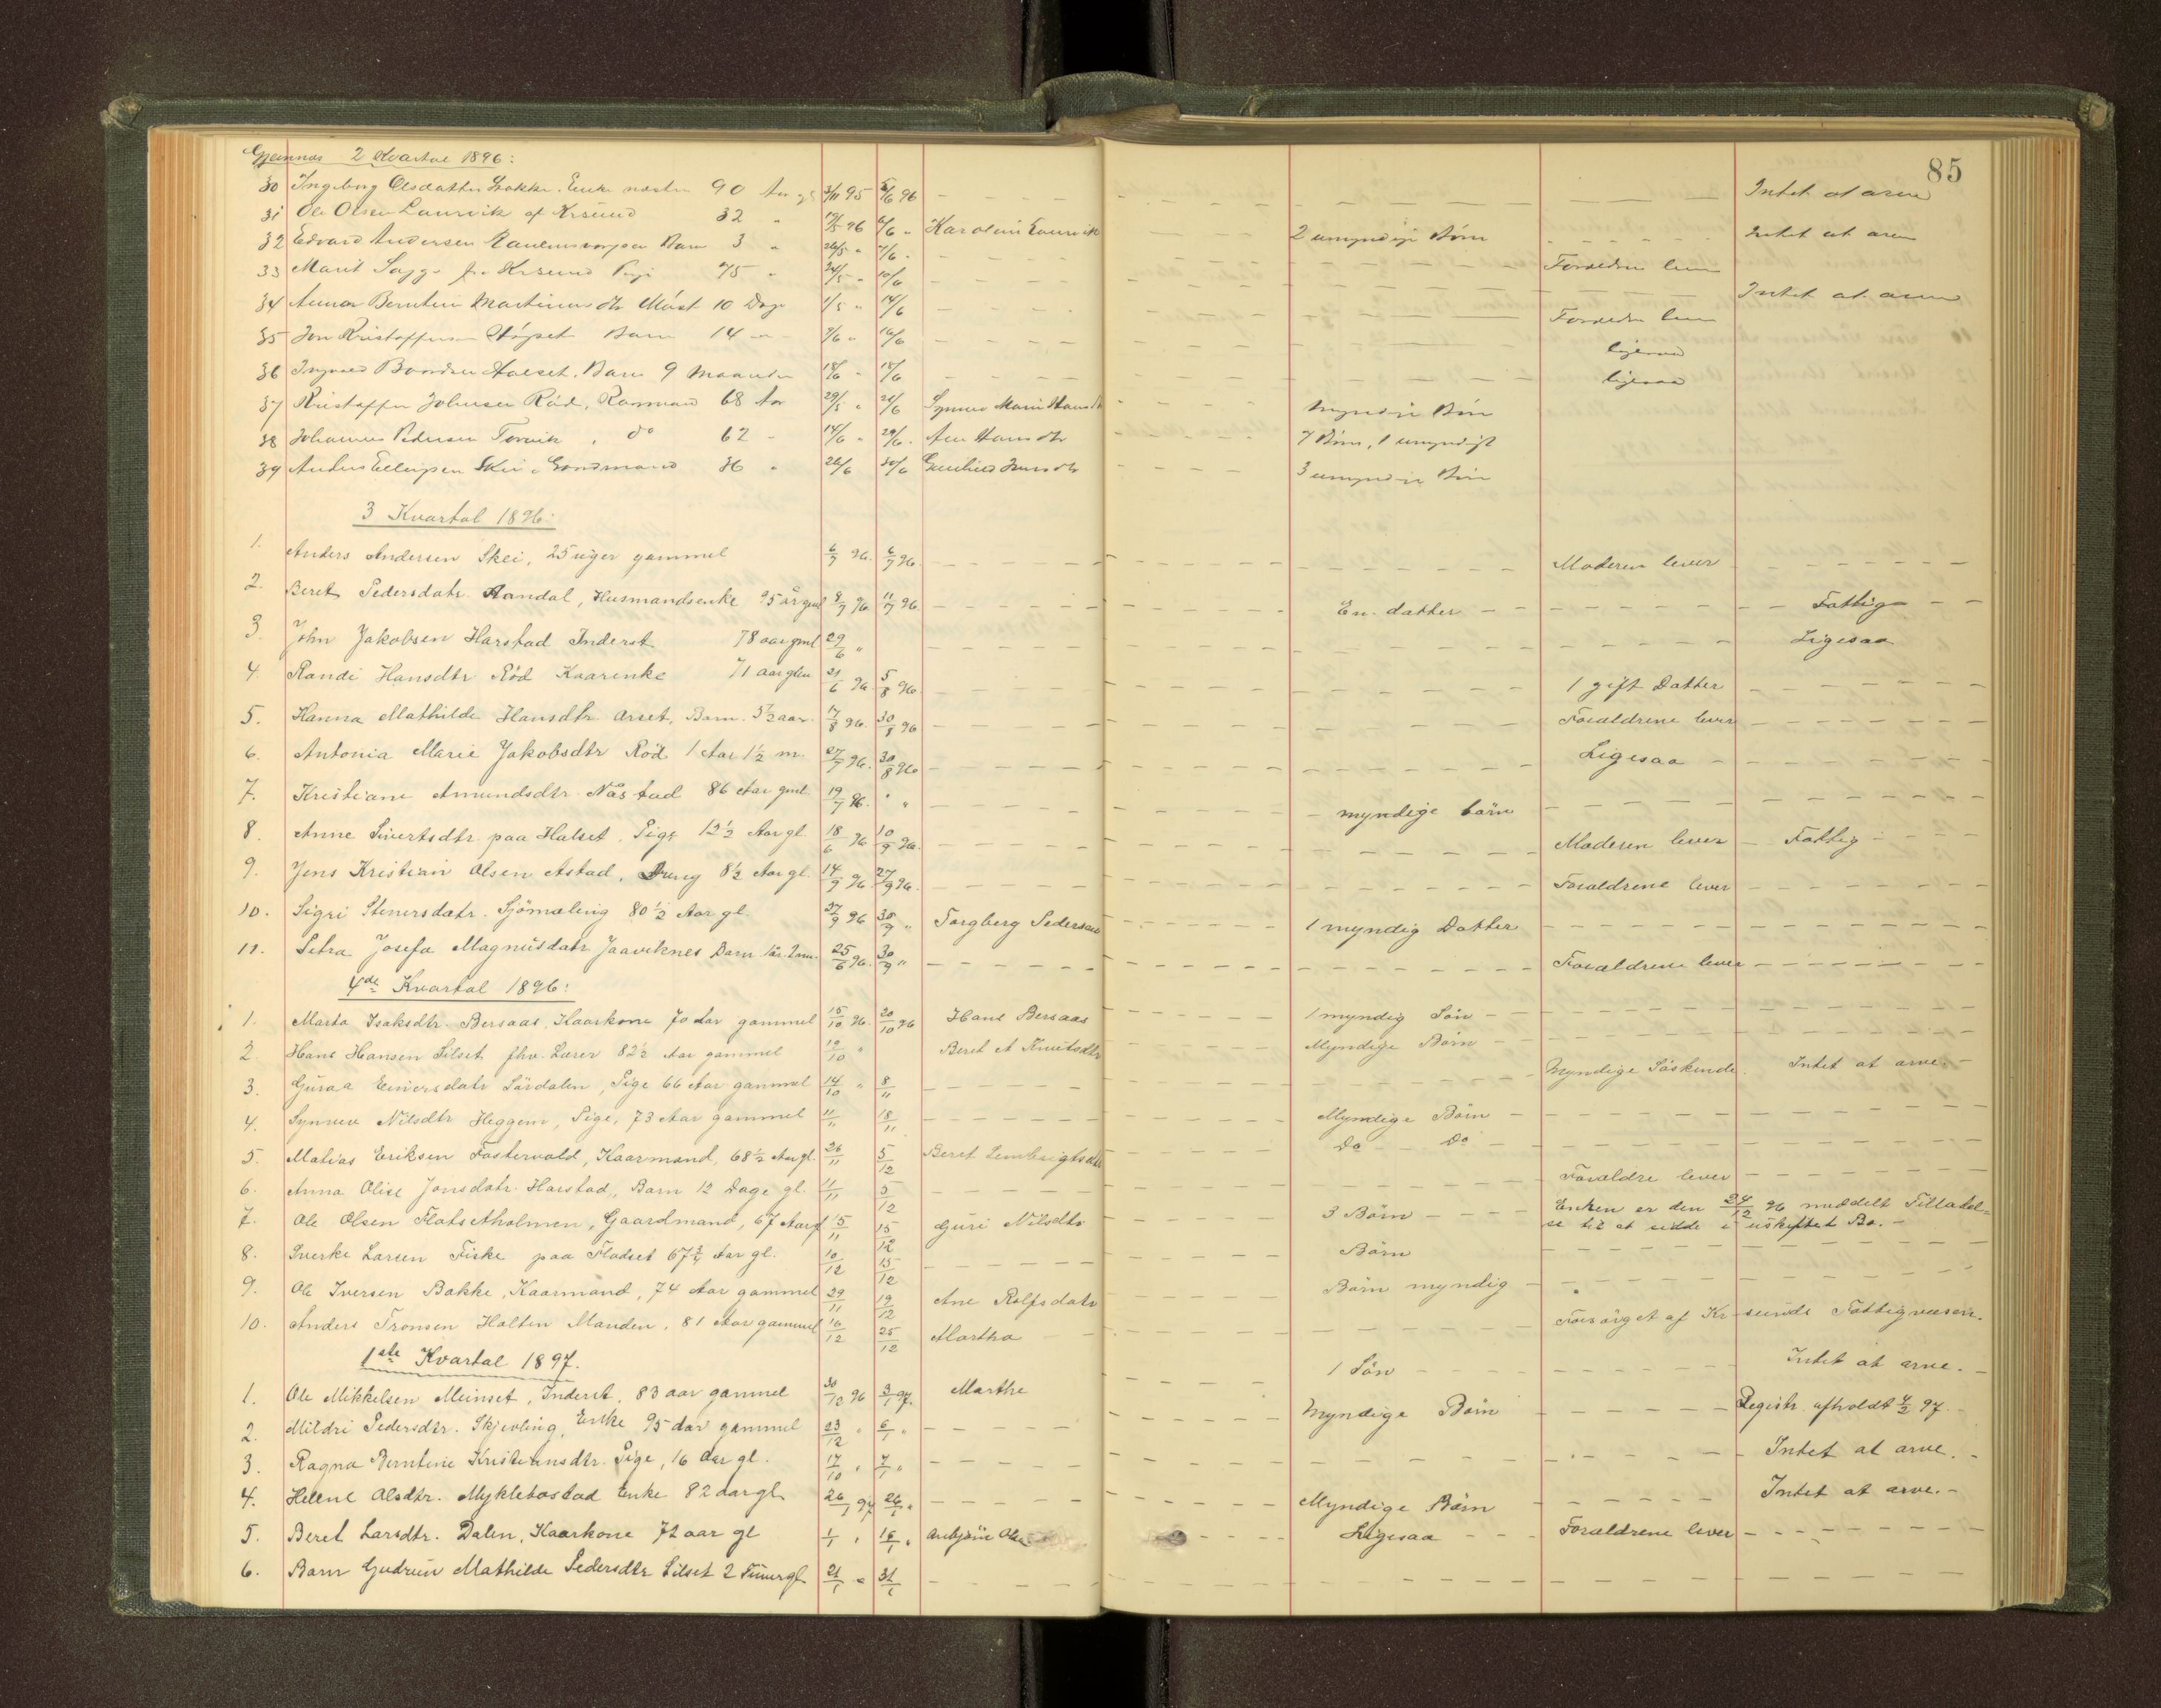 85
Gjemnes 2 Kvartal 1896:
30 Ingeborg Olsdatter Bakke. Enke næsten 90 Aar 3/11 95 5/6 96 Intet at arve
31 Ole Olsen Laurvik af Krsund 32 " 19/5 96 6/6 " Karoline Laurvik 2 umyndige Börn Intet at arve
32 Edvard Andersen Barn 3 " 26/5 " 7/6 " Forældre lever
33 Marit fra Krsund Pige 75 " 24/5 " 10/6 Intet at arve
34 Anna Berntine Martinusdtr 10 Dage 1/5 " 14/6 Forældre lever
35 Jon Kristoffersen Barn 14 " 7/6 " 16/6 ligesaa
36 Ingvald Aaeset. Barn 9 Maaneder 18/6 " 18/6 ligesaa
37 Kristoffer Johnsen Röd, Kaarmand 68 Aar 29/5 " 21/6 Synnev Marie Hansdtr Myndige Börn
38 Johannes Pedersen Torvik, do 62 " 14/6 " 29/6 " Ane Hansdtr 7 Börn, 1 umyndigt
39 Anders Ellingsen Skei, Gaardmand 36 " 26/6 30/6 Gunhild Jensdtr 3 umyndige Börn
3 Kvartal 1896:
1. Anders Andersen Skei, 25 uger gammel 6/7 96. 6/7 96. Moderen lever
2. Beret Pedersdatr. Aandal, Husmandsenke 95 år gml 8/7 96 11/7 96. En datter Fattig
3. John Jakobsen Harstad Inderst 78 aar gml 29/6 " Ligesaa
4. Randi Hansdtr Röd Kaarenke 71 aar glm 21/6 96. 5/8 96. 1 gift Datter
5. Hanna Mathilde Hansdtr. Orset, Barn. 5½ aar. 17/8 96. 30/8 96 Forældrene lever
6. Antonia Marie Jakobsdtr Röd 1 Aar 1½ m. 27/7 96. 30/8 96 Ligesaa
7. Kristiane Amundsdtr. Nåstad 86 Aar gml. 19/7 96. " " myndige börn
8. Anne Sivertsdtr. paa Halset. Pige 12½ Aar gl 18/6 96 10/9 96. Moderen lever Fattig
9. Jens Kristian Olsen Astad, Dreng 8½ Aar gl. 14/9 96 27/9 96. Forældrene lever
10. Sigri Stenersdatr. Sjömæling 80½ Aar gl 27/9 96 30/9 " Torgberg Pedersen 1 myndig Datter
11. Petra Josefa Magnusdatr Jaaviknes Barn 1 år 2 mn. 25/6 96. 30/9 " Forældrene lever
4de Kvartal 1896:
1. Marta Isaksdtr. Bersaas, Kaarkone 70 Aar gammel 15/10 96. 20/10 96 Hans Bersaas 1 myndig Sön
2. Hans Hansen Silset fhv. Lærer 82½ Aar gammel 19/10 " Beret et Knutsdtr Myndige Börn
3. Guraa Einersdatr Sördalen, Pige 66 Aar gammel 14/10 " 8/11 Myndige Söskende. Intet at arve.
4. Synneve Nilsdtr Heggem, Pige, 73 Aar gammel 11/11 18/11 Myndige Börn
5. Matias Eriksen Fostervold, Kaarmand, 68½ Aar gl. 26/11 5/12 Beret Lembrigtsdtr Do Do
6. Anna Olise Jonsdatr. Harstad, Barn 12 Dage gl. 11/11 5/12 Forældre lever
7. Ole Olsen Flatsetholmen, Gaardmand, 67 Aar g 15/11 15/12 Guri Nilsdtr 3 Börn Enken er den 24/12 96 meddelt Tilladel=
se til at sidde i uskiftet Bo.
8. Sverke Larsen Fiske paa Flodset 67¾ Aar gl. 10/12 15/12 Börn
9. Ole Iversen Bakke, Kaarmand, 74 Aar gammel 29/11 19/12 Ane Rolfsdatr Börn myndig
10. Anders Tronsen Holten Manden, 81 Aar gammel 16/12 25/12 Martha Forsörget af Krsunds Fattigvæsen.
1ste Kvartal 1897.
1. Ole Mikkelsen Meinset, Inderst, 83 aar gammel 30/12 96 3/1 97. Marthe 1 Sön Intet at arve.
2. Mildri Pedersdtr. Skjevling, Enke 95 aar gammel 23/12 " 6/1 " Myndige Börn Registr. afholdt 4/2 97.
3. Ragna Berntine Kristiansdtr. Pige, 16 Aar gl. 17/10 " 7/1 " Intet at arve.
4. Helene Olsdtr. Myklebostad Enke 82 aar gl. 26/1 97 26/1 " Myndige Börn Intet at arve.
5. Beret Larsdtr. Dalen, Kaarkone 72 aar gl 1/1 " 16/1 " Anbjörn Ligesaa
6. Barn Gudrun Mathilde Pedersdtr Silset 2 Timer gl. 21/1 " 31/1 Forældrene lever